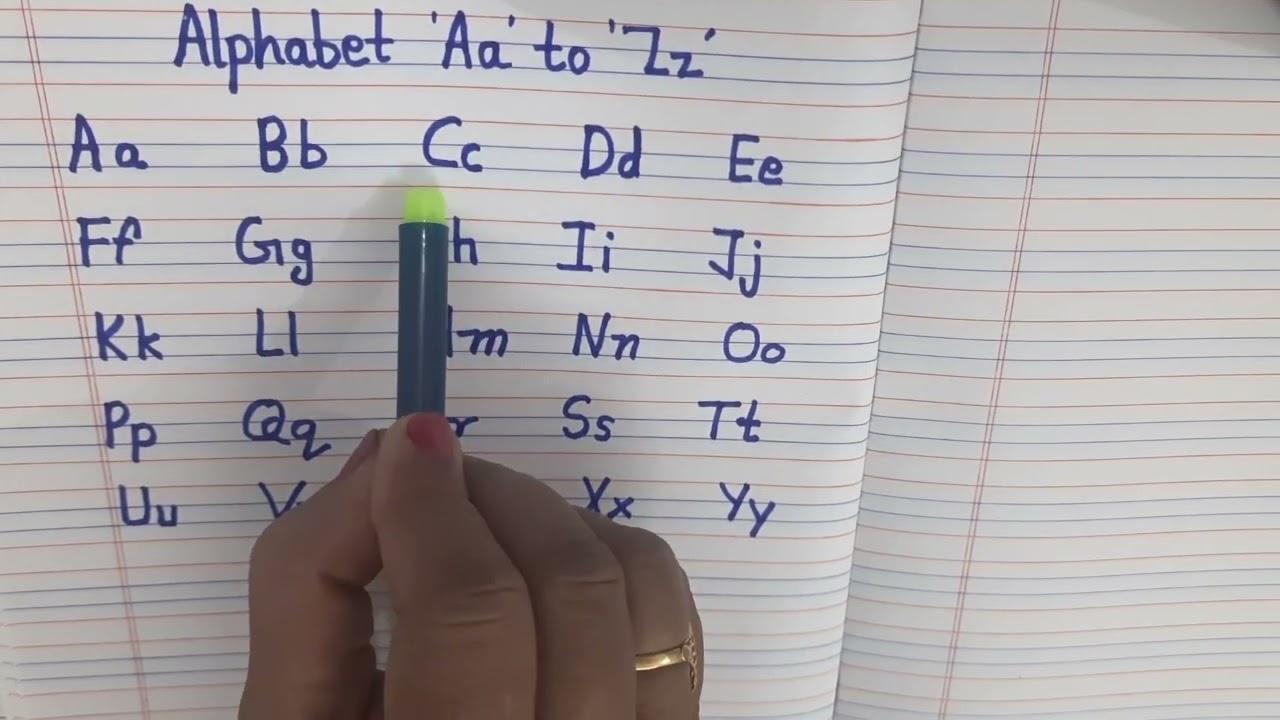 Alphabet 'Aa' to 'Zz'
Aa Bb Cc Dd Ee
Ff Gg h Ii Jj
Kk Ll m Nn Oo
Pp Qq r Ss Tt
Uu V Xx Yy